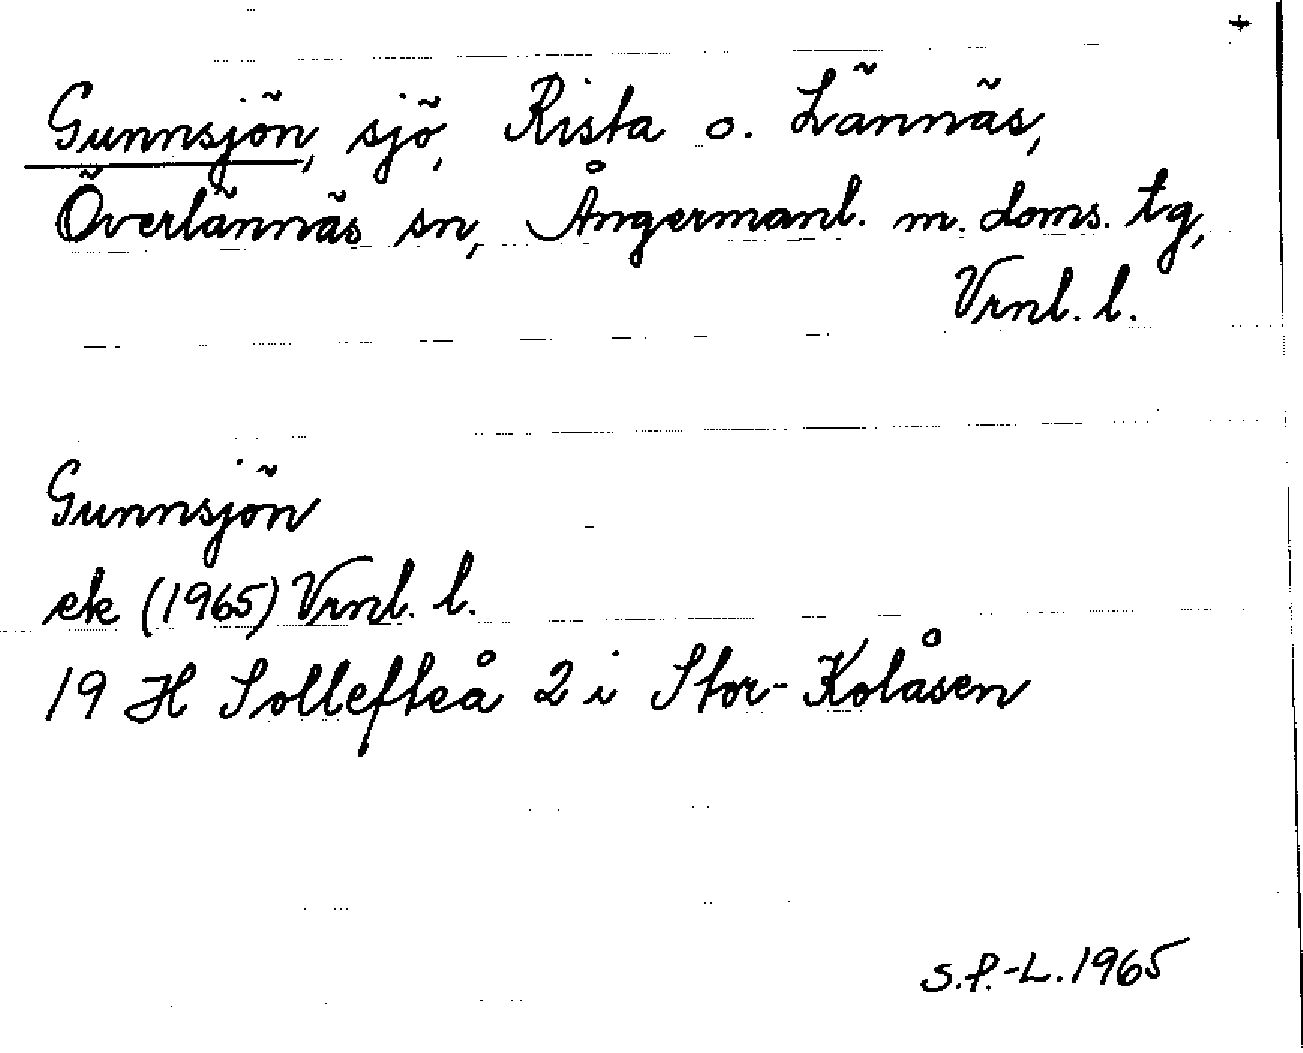 +
Gunnsjön, sjö, Rista o. Lännäs,
Överlännäs sn, Ångermanl. m. doms. tg,
Vrnl. l.
Gunnsjön
ek (1965) Vrnl. l.
19 H Sollefteå 2 i Stor-Kolåsen
S.P.-L. 1965